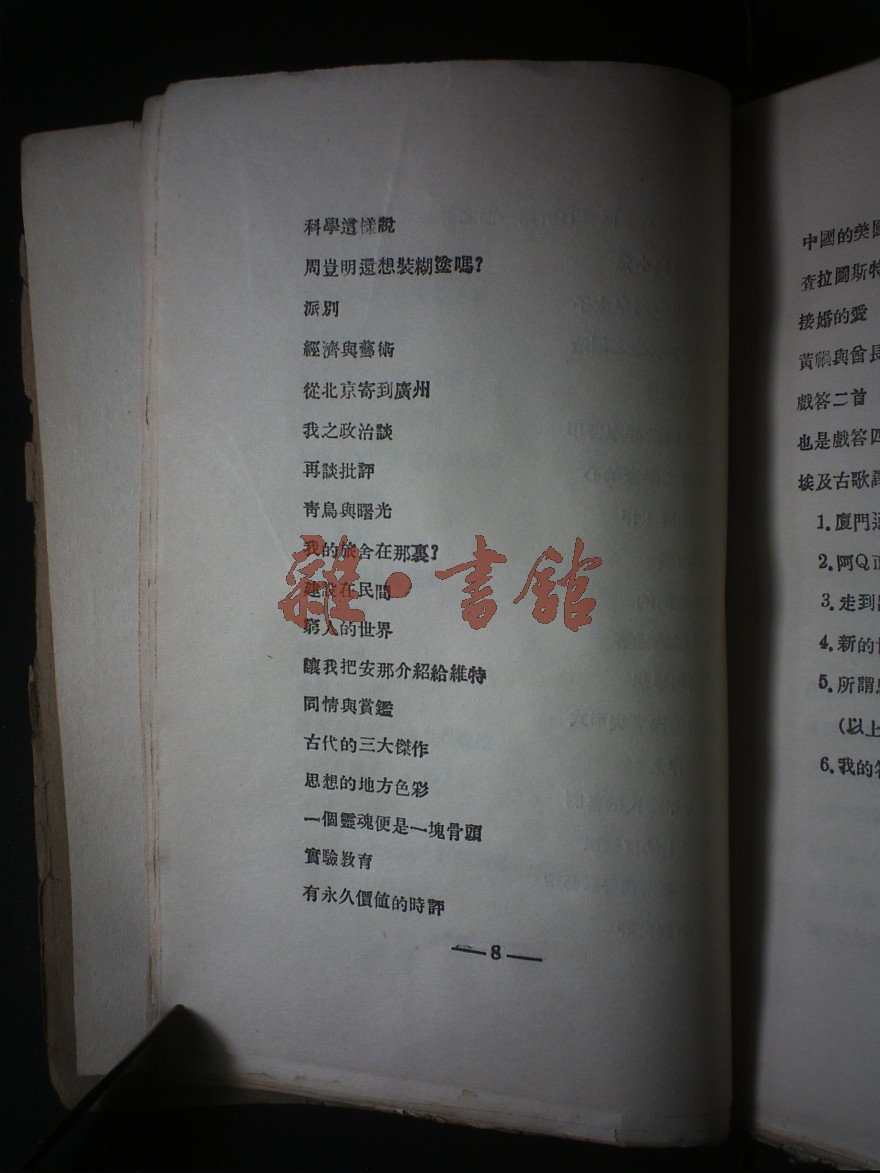 科學這樣說
周豈明還想裝糊塗嗎?
派別
經濟與藝術
從北京寄到廣州
我之政治談
再談批評
青鳥與曙光
我的旅舍在那裏?
建設在民間
窮人的世界
讓我把安那介紹給維特
同情與賞鑑
古代的三大傑作
思想的地方色彩
一個靈魂便是一塊骨頭
實驗教育
有永久價值的時評
— 8 —
雜·書館
中國的美國
查拉圖斯特
接婚的愛
黃禍與會長
戲答二首
也是戲答四
埃及古歌譯
1.廈門通
2.阿Q正
3.走到出
4.新的世
5.所謂
(以上
6.我的答